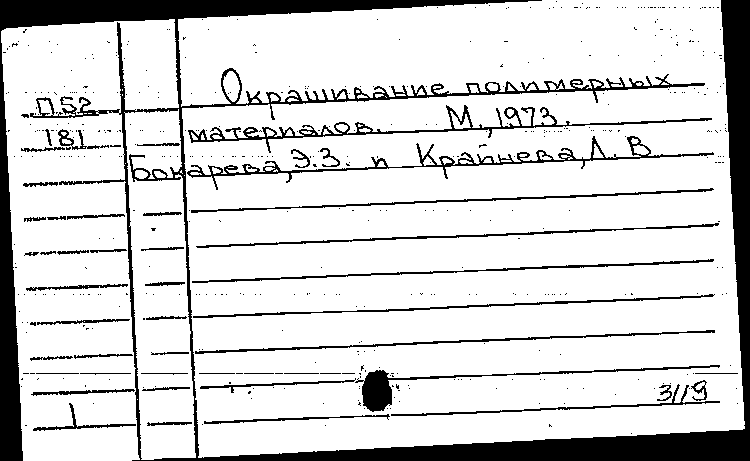 Окрашивание полимерных
П52
181
материалов. М., 1973.
Бокарева, Э.З. и Крайнева, Л. В.
3119
1